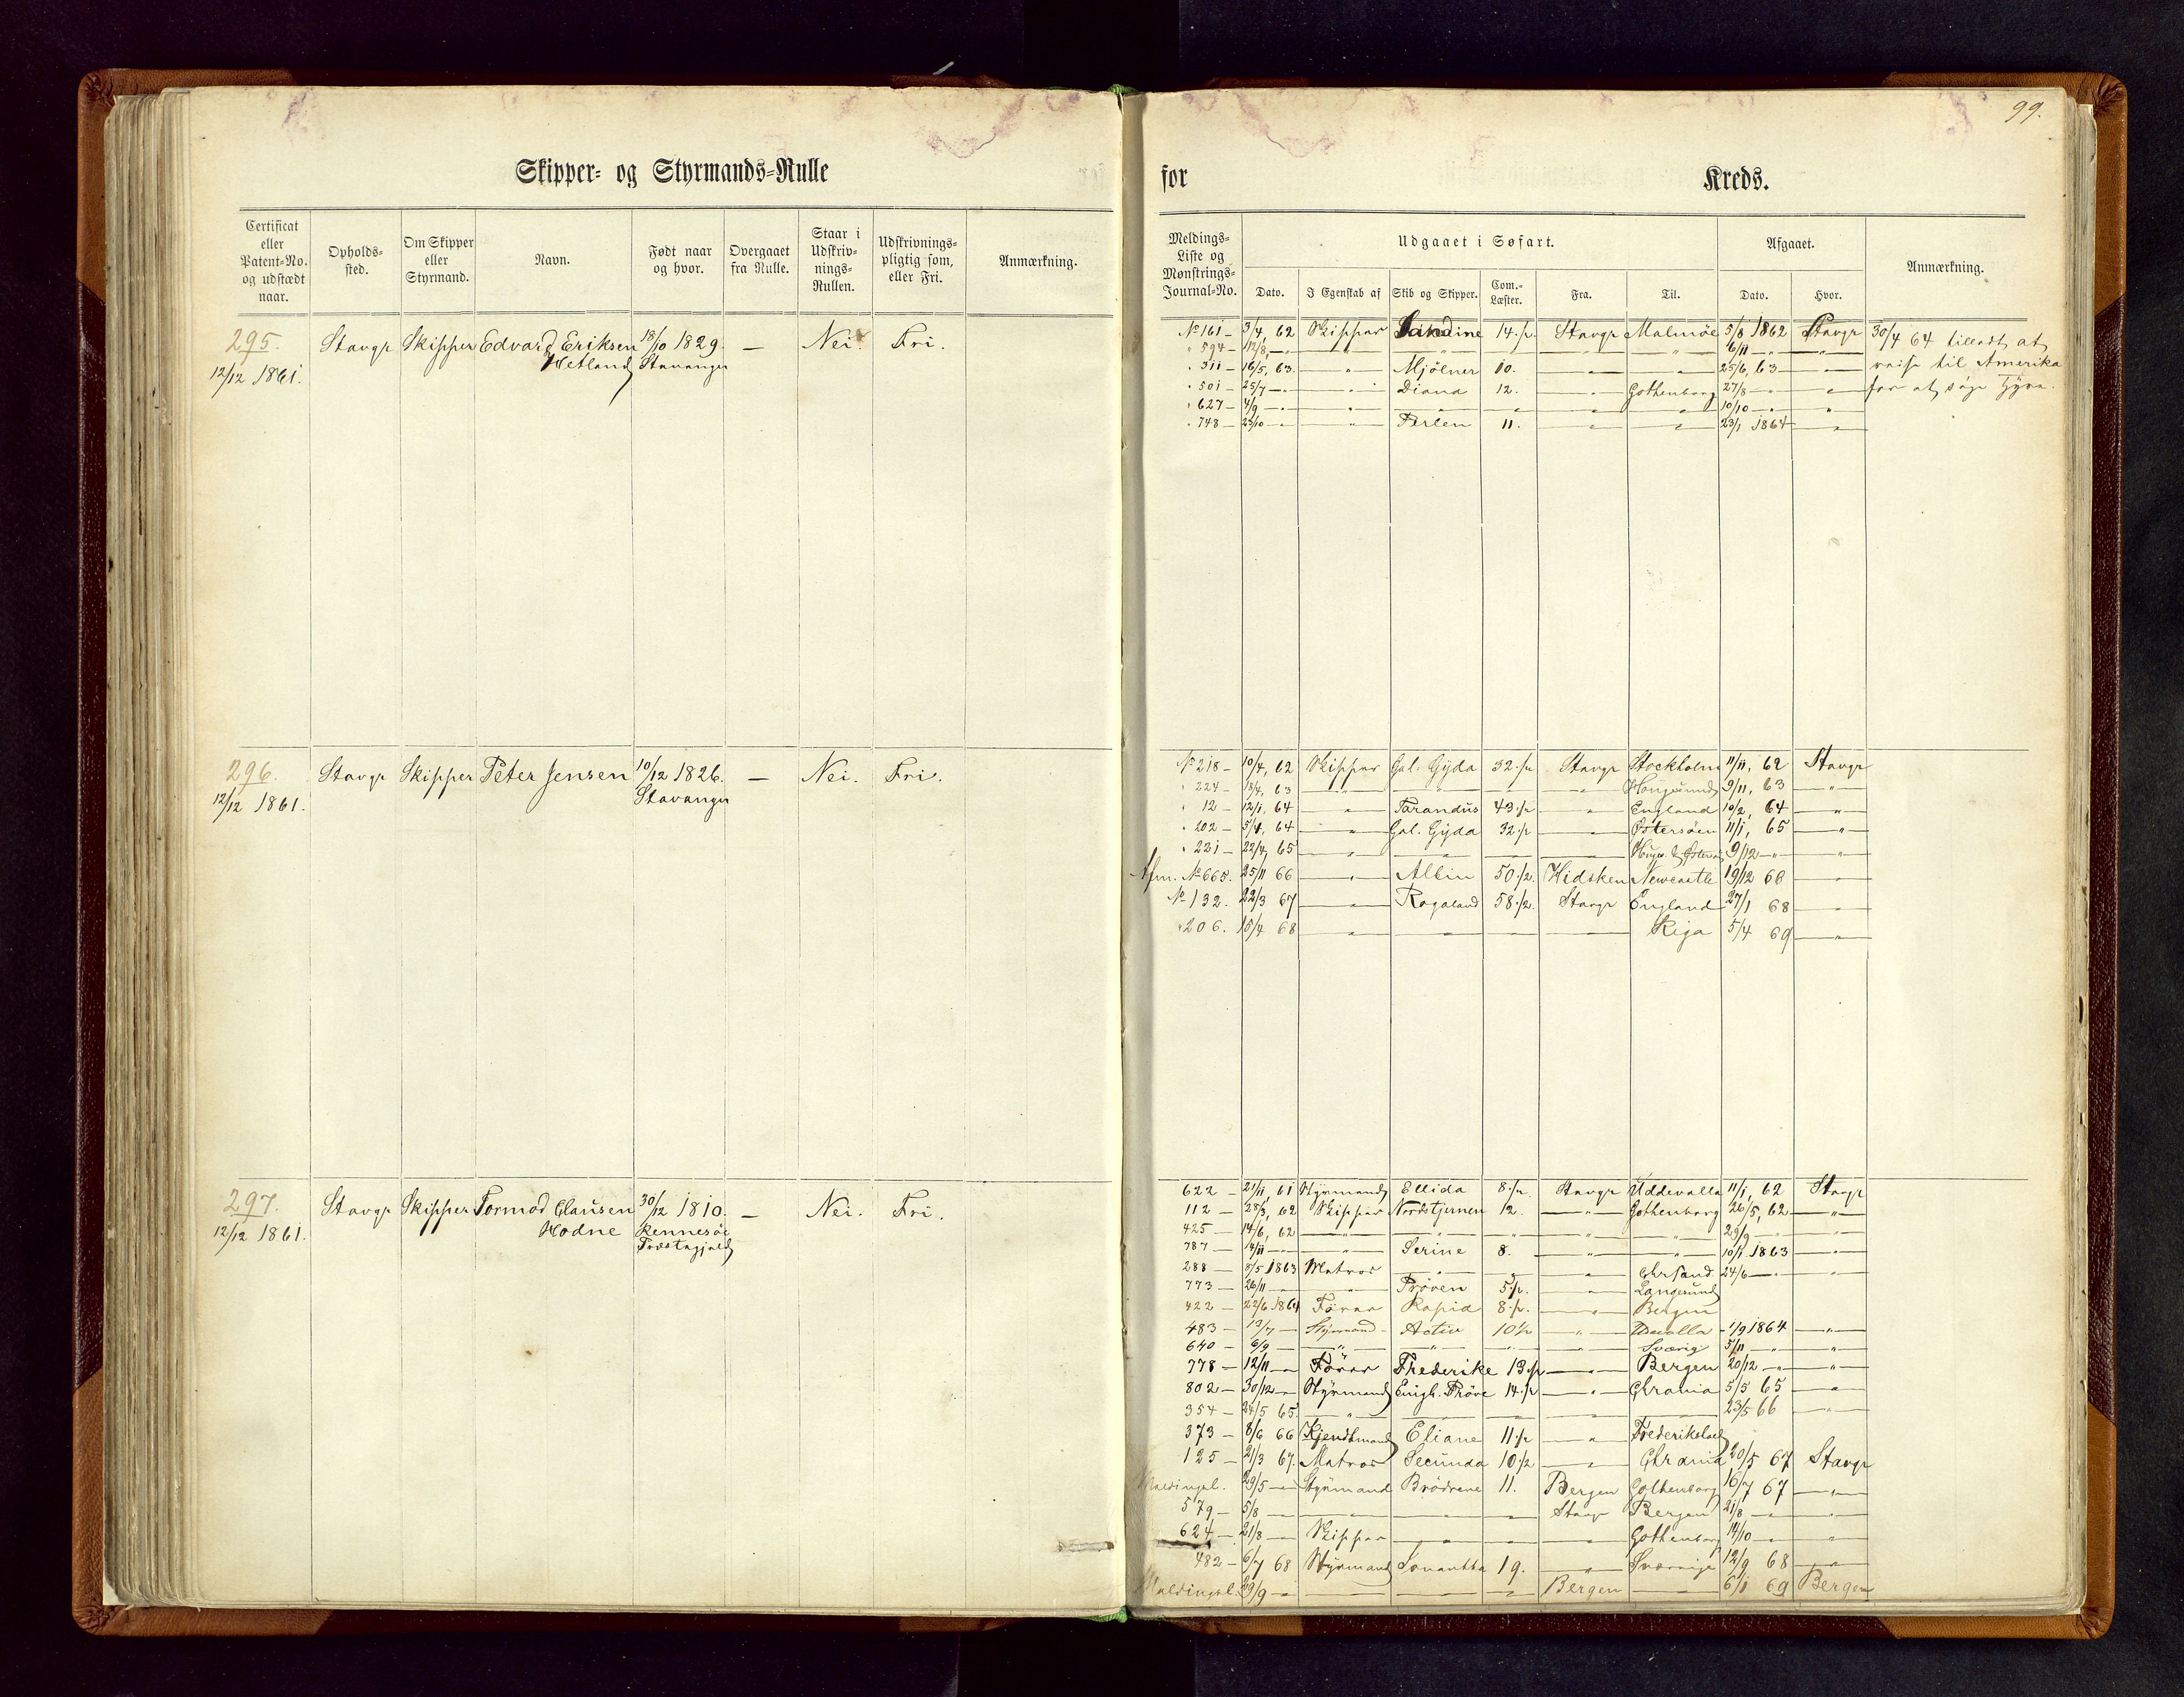 99.
Skipper- og Styrmands-Rulle
for Kreds.
Certificat eller Patent-No. og udstædt naar.
Opholds-sted.
Om Skipper eller Styrmand.
Navn.
Født naar og hvor.
Overgaaet fra Rulle.
Staar i Udskriv-nings-Rullen.
Udskrivnings-pligtig som, eller Fri.
Anmærkning.
Meldings-Liste og Mønstrings-Journal-No.
Udgaaet i Søfart.
Dato.
I Egenskab af
Skib og Skipper.
Com.-Læster.
Fra.
Til.
Afgaaet.
Dato.
Hvor.
Anmærkning.
295. Stavgr Skipper Edvard Eriksen 18/10 1829. — Nei. Fri.
12/12 1861. Hetland Stavanger
No 161 — 3/4, 62 Skipper 14 1/2 Stavgr Malmöe 5/8 1862 Stavgr 30/4 64 tilladt at
" 594 — 12/8 — " — " — 6/11 — " —
" 311 — 16/5, 63 — " — Mjölner 10. — " — " — 25/6, 63 — " — reise til Amerika
" 501 — 25/7 — " — Diana 12. — " — Gothenborg 27/8 — " — for at søge Hyre.
" 627 — 4/9 — " — " — " — 10/10 — " —
" 748 — 23/10 — " — Perlen 11. — " — " — 23/1 1864 — " —
296. Stavgr Skipper Peter Jensen 10/12 1826. — Nei. Fri.
12/12 1861. Stavanger
No 218 — 10/4, 62 Skipper Gal. Gyda 32 1/2 Stavgr Stockholm 11/11, 62 Stavgr
" 224 — 18/4, 63 — " — " — 9/11, 63 — " —
" 12 — 12/1, 64 — " — Tarandus 43 1/2 — " — England 10/2, 64 — " —
" 202 — 5/4, 64 — " — Gal. Gyda 32 1/2 — " — Østersöen 11/1, 65 — " —
" 221 — 22/4, 65 — " — " — 9/12 — " — " —
No 665. 25/11 66 — " — Albin 50 1/2 Hidsken Newcastle 19/12 66 — " —
No 132. 22/3 67 — " — Rogaland 58 1/2 Stavgr England 27/1 68 — " —
" 206. 15/4 68 — " — " — Riga 5/4 69 — " —
297. Stavgr Skipper Tormod Clausen 30/12 1810. — Nei. Fri.
12/12 1861. Hodne Rennesöe
Præstegjeld
622 — 21/11, 61 Styrmand Ellida 8 1/2 Stavgr Uddevalla 11/1, 62 Stavgr
112 — 28/3, 62 Skipper Nordstjernen 12. — " — Gothenborg 26/5, 62 — " —
425 — 14/6, 62 — " — " — " — " — 29/9 — " —
787 — 14/11 — " — Serine 8. — " — " — 10/1 1863 — " —
288 — 8/5 1863 Matros — " — " — Chrsand. 24/6 — " — " —
773 — 26/11 — " — Pröven 5 1/2 — " — Langesund
422 — 22/6 1864 Förer Rapid 8 1/2 — " — Bergen
483 — 13/7 — Styrmand Activ 10 1/2 — " — 1/9 1864 — " —
640 — 6/9 — " — " — " — Sverig 5/11 — " — " —
778 — 12/11 — Förer Frederike 13 1/2 — " — Bergen 20/12 — " — " —
802 — 30/12 — Styrmand Enigh. Pröve 14 1/2 — " — Chrania 5/5 65 — " —
354 — 24/5 65. — " — " — 23/5 66 — " —
373 — 8/6 66 Kjendtmand Eliane 11 1/2 — " — Frederikshald
125 — 21/3 67. Matros Secunda 10 1/2 — " — Chrania 20/5 67 Stavgr
Meldingsl. 29/5 — Styrmand Brödrene 11. Bergen Gothenborg 16/7 67 — " —
579 — 5/8 — " — " — Stavgr Bergen 21/8 — " —
624 — 21/8 — Skipper — " — Gothenborg 14/10 — " —
482 — 6/7 68 Styrmand Samantha 19. — " — Sverrige 12/9 68 — " —
Meldingsl. 29/9 — " — " — Bergen — 6/1 69 Bergen